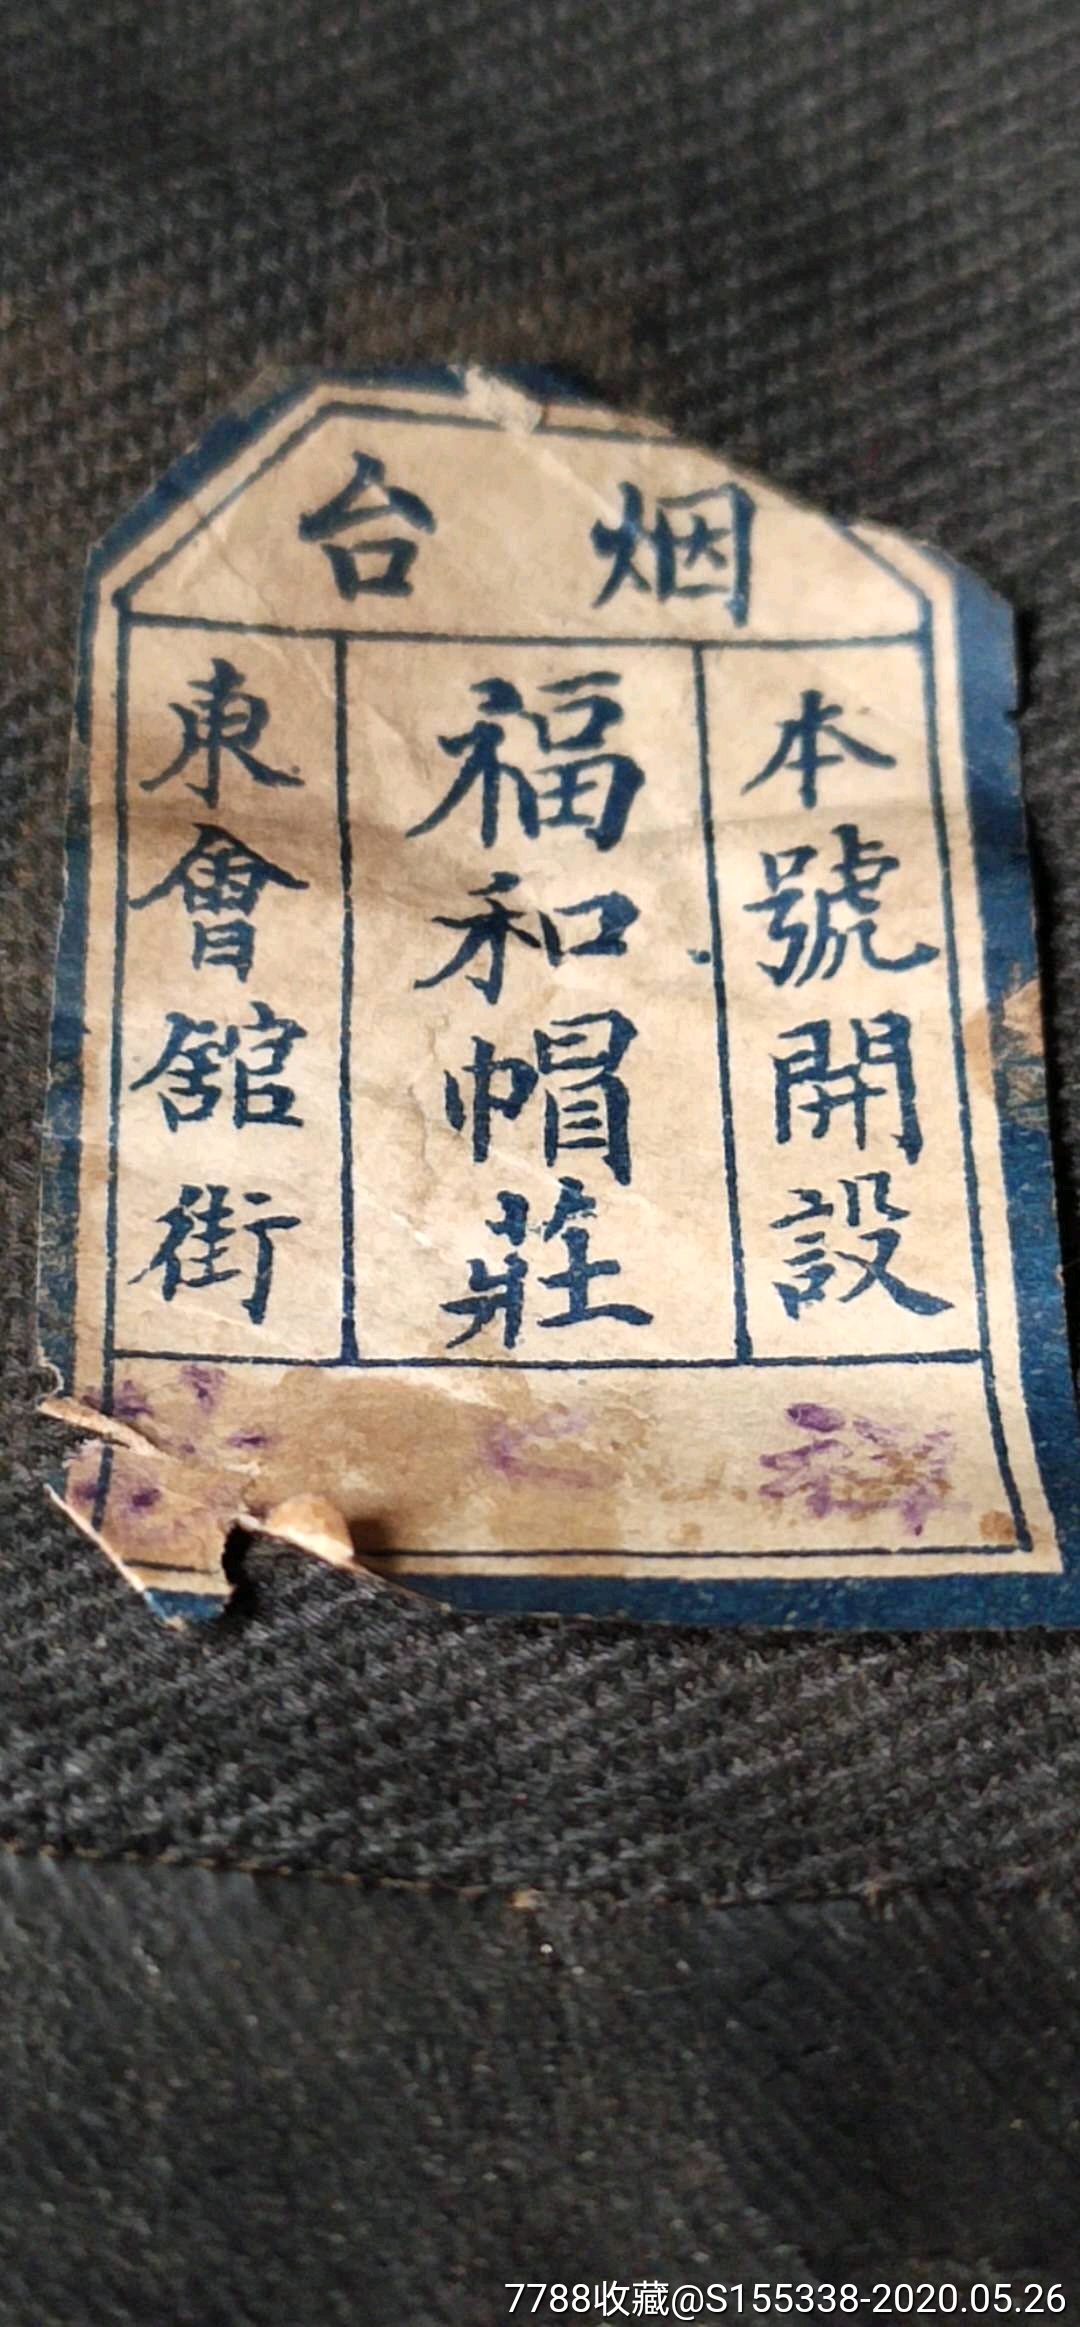 烟台
本號開設
福和帽莊
東會舘街
7788收藏@S155338-2020.05.26